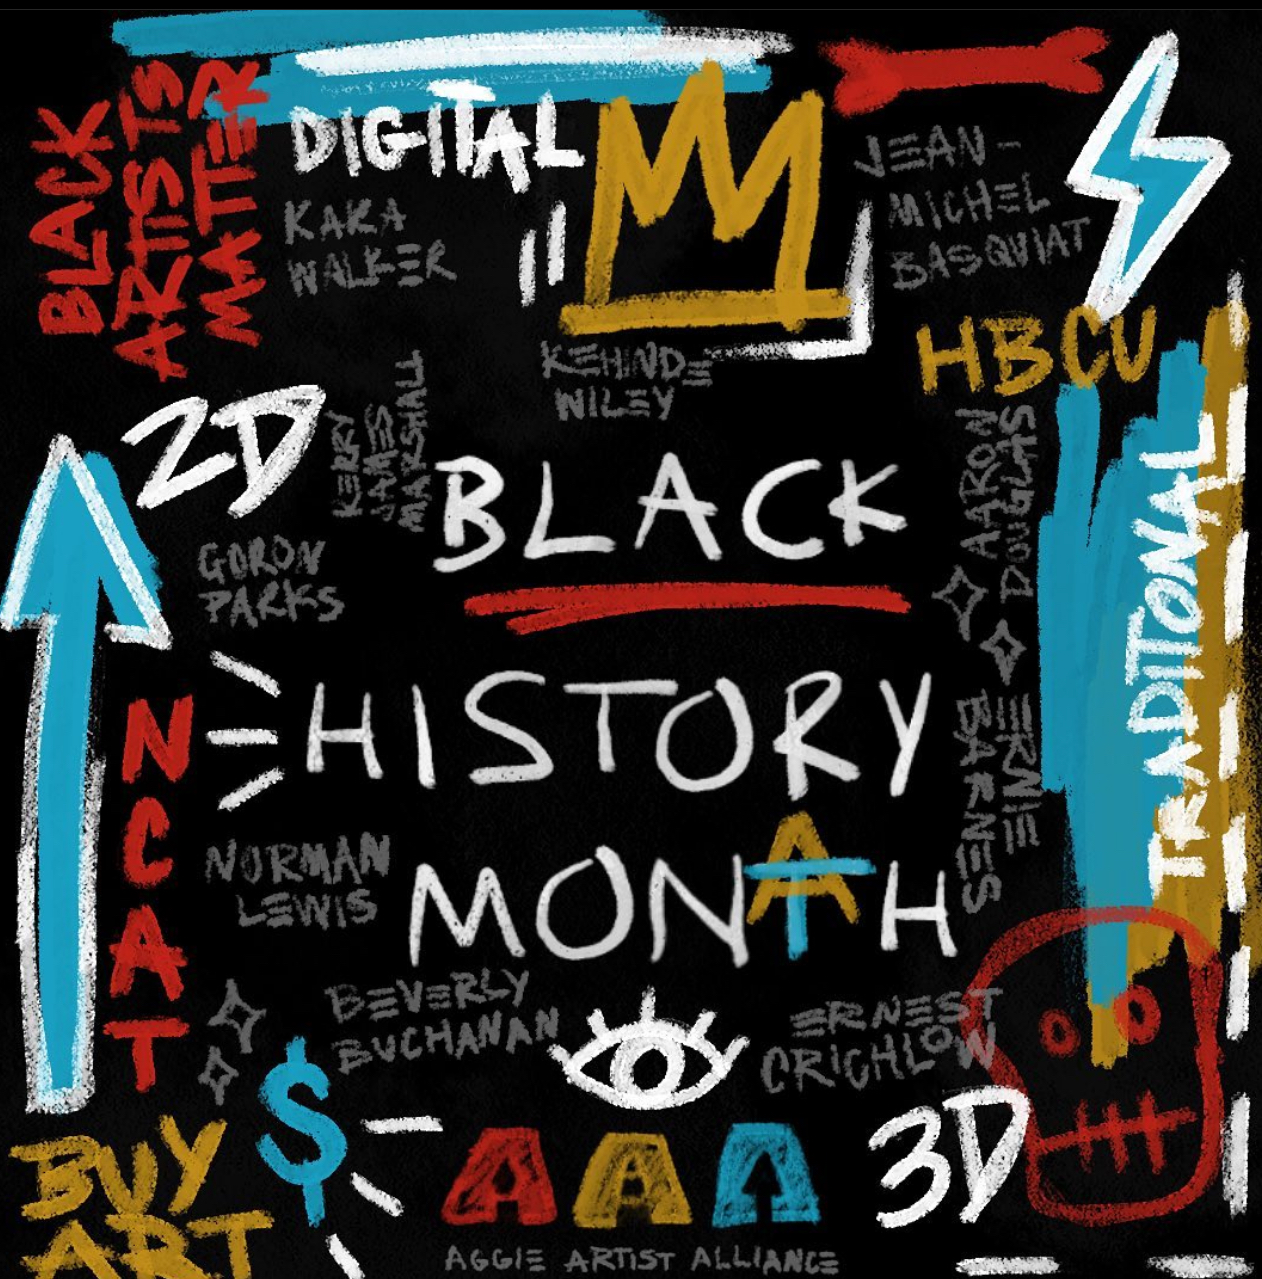 BLACK
ARTISTS
MATTER
DIGITAL
KARA
WALKER
JEAN-
MICHEL
BASQUIAT
HBCU
KEHINDE
WILEY
2D
KERRY
JAMES
MARSHALL
AARON
DOUGLAS
TRADITONAL
BLACK
GORON
PARKS
HISTORY
ERNIE
BARNES
NCAT
NORMAN
LEWIS
MONTH
A
BEVERLY
BUCHANAN
ERNEST
CRICHLOW
$
3D
BUY
ART
AAA
AGGIE ARTIST ALLIANCE